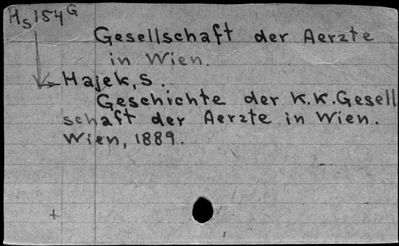 Hs154G
Gesellschaft der Aerzte
in Wien.
Hajek, S.
Geschichte der K.K. Gesell
schaft der Aerzte in Wien.
Wien, 1889.